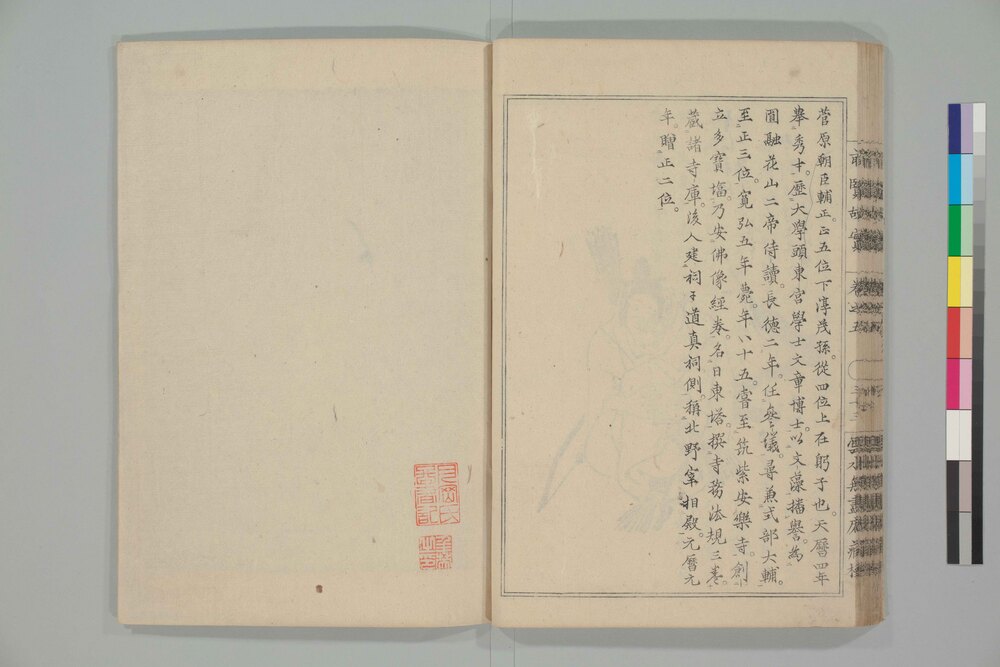 菅原朝臣輔正。正五位下淳茂孫。從四位上在躬子也。天曆四年
擧秀才。歷大學頭東宮學士文章博士。以文藻播譽。爲
圓融花山二帝侍讀。長德二年。任參議。尋兼式部大輔。
至正三位。寬弘五年薨。年八十五。嘗至筑紫安樂寺。創
立多寶塔。乃安佛像經卷。名曰東塔。撰寺務法規三卷。
藏諸寺庫。後人建祠于道真祠側。稱北野宰相殿。元曆元
年。贈正二位。
前賢故實 卷之五